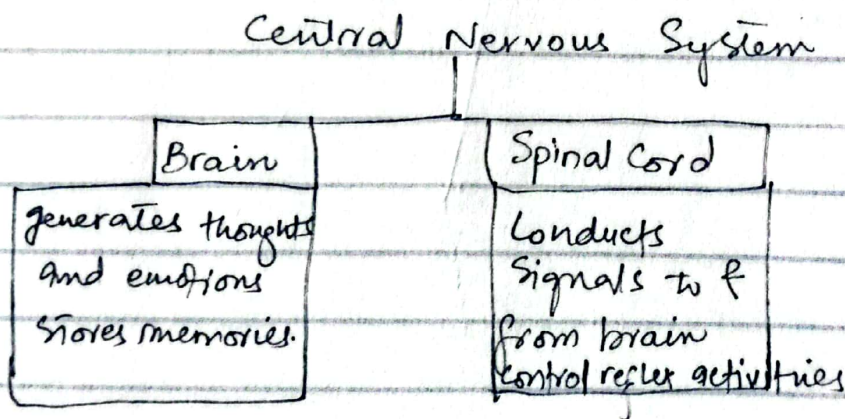 Central Nervous System
Brain
generates thoughts
and emotions
stores memories.
Spinal Cord
Conducts
signals to &
from brain
control reflex activities